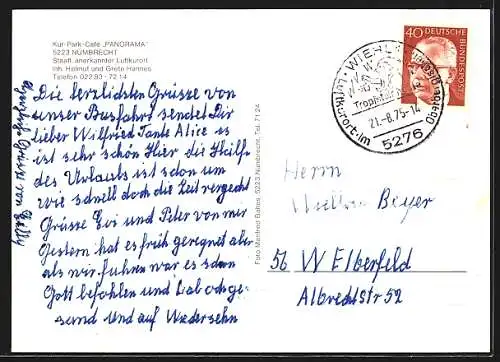 Kur-Park-Cafe „PANORAMA"
5223 NÜMBRECHT
Staatl. anerkannter Luftkurort
Inh. Helmut und Grete Hannes
Telefon 022 93 - 72 14
Die herzlichsten Grüsse von
unser Busfahrt sendet Dir
lieber Wilfried Tante Alice es
ist sehr schön Hier die Hälfte
des Urlaubs ist schon um
wie schnell doch die Zeit vergeht
Grüsse Evi und Peter von mir
Gestern hat es früh geregnet aber
als wir fuhren war es schön
Gott befohlen und bleib
sund und auf Wiedersehn
Foto Manfred 5223 Nümbrecht, Tel. 71 24
40
DEUTSCHE
BUNDESPOST
WIEHL
Luftkurort im
21.-8.75-14
5276
Herrn
Beyer
56 W Elberfeld
Albrechtstr 52